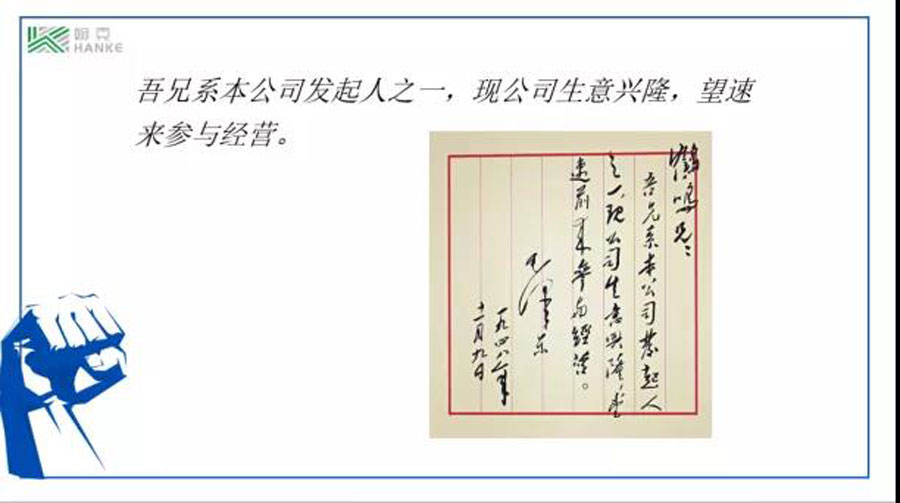 翰克
HANKE
吾兄系本公司发起人之一，现公司生意兴隆，望速
来参与经营。
鹤鸣兄：
吾兄系本公司发起人
之一，现公司生意兴隆，望
速前来参与经营。
毛泽东
一九四八年
十一月九日